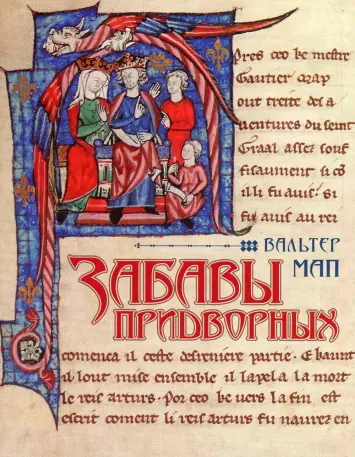 pres ceo ke mestre
Gautier map
out treite des a
uentures du seint
Graal assez souf
fisaument si cō
il li fu auis: si
fu auis au rei
ВАЛЬТЕР
МАП
ЗАБАВЫ
ПРИДВОРНЫХ
comenca il ceste desreniere partie. E kaunt
il lout mise ensemble il lapela la mort
le reis arturs. Por ceo ke vers la fin est
escrit coment li reis arturs fu naurez en